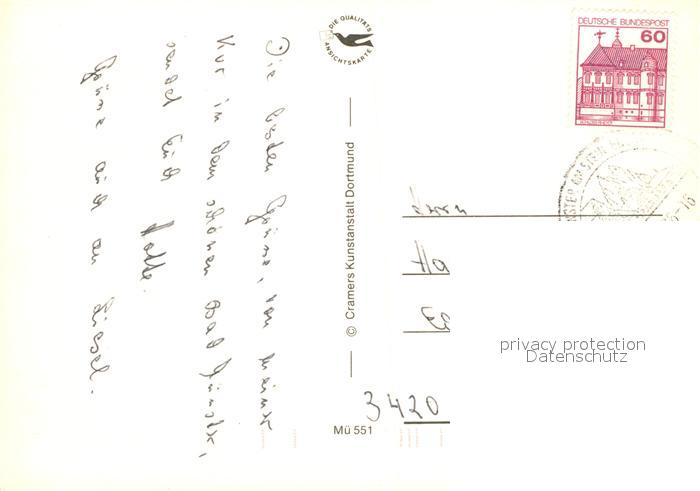 Die besten Grüße, von meiner
Kur in dem schönen Bad Münster,
sendet Euch Lotte.
Grüße auch an Liesel.
DIE QUALITÄTS
ANSICHTSKARTE
© Cramers Kunstanstalt Dortmund
Mü 551
DEUTSCHE BUNDESPOST
60
MÜNSTER AM STEIN
Herrn
3420
privacy protection
Datenschutz